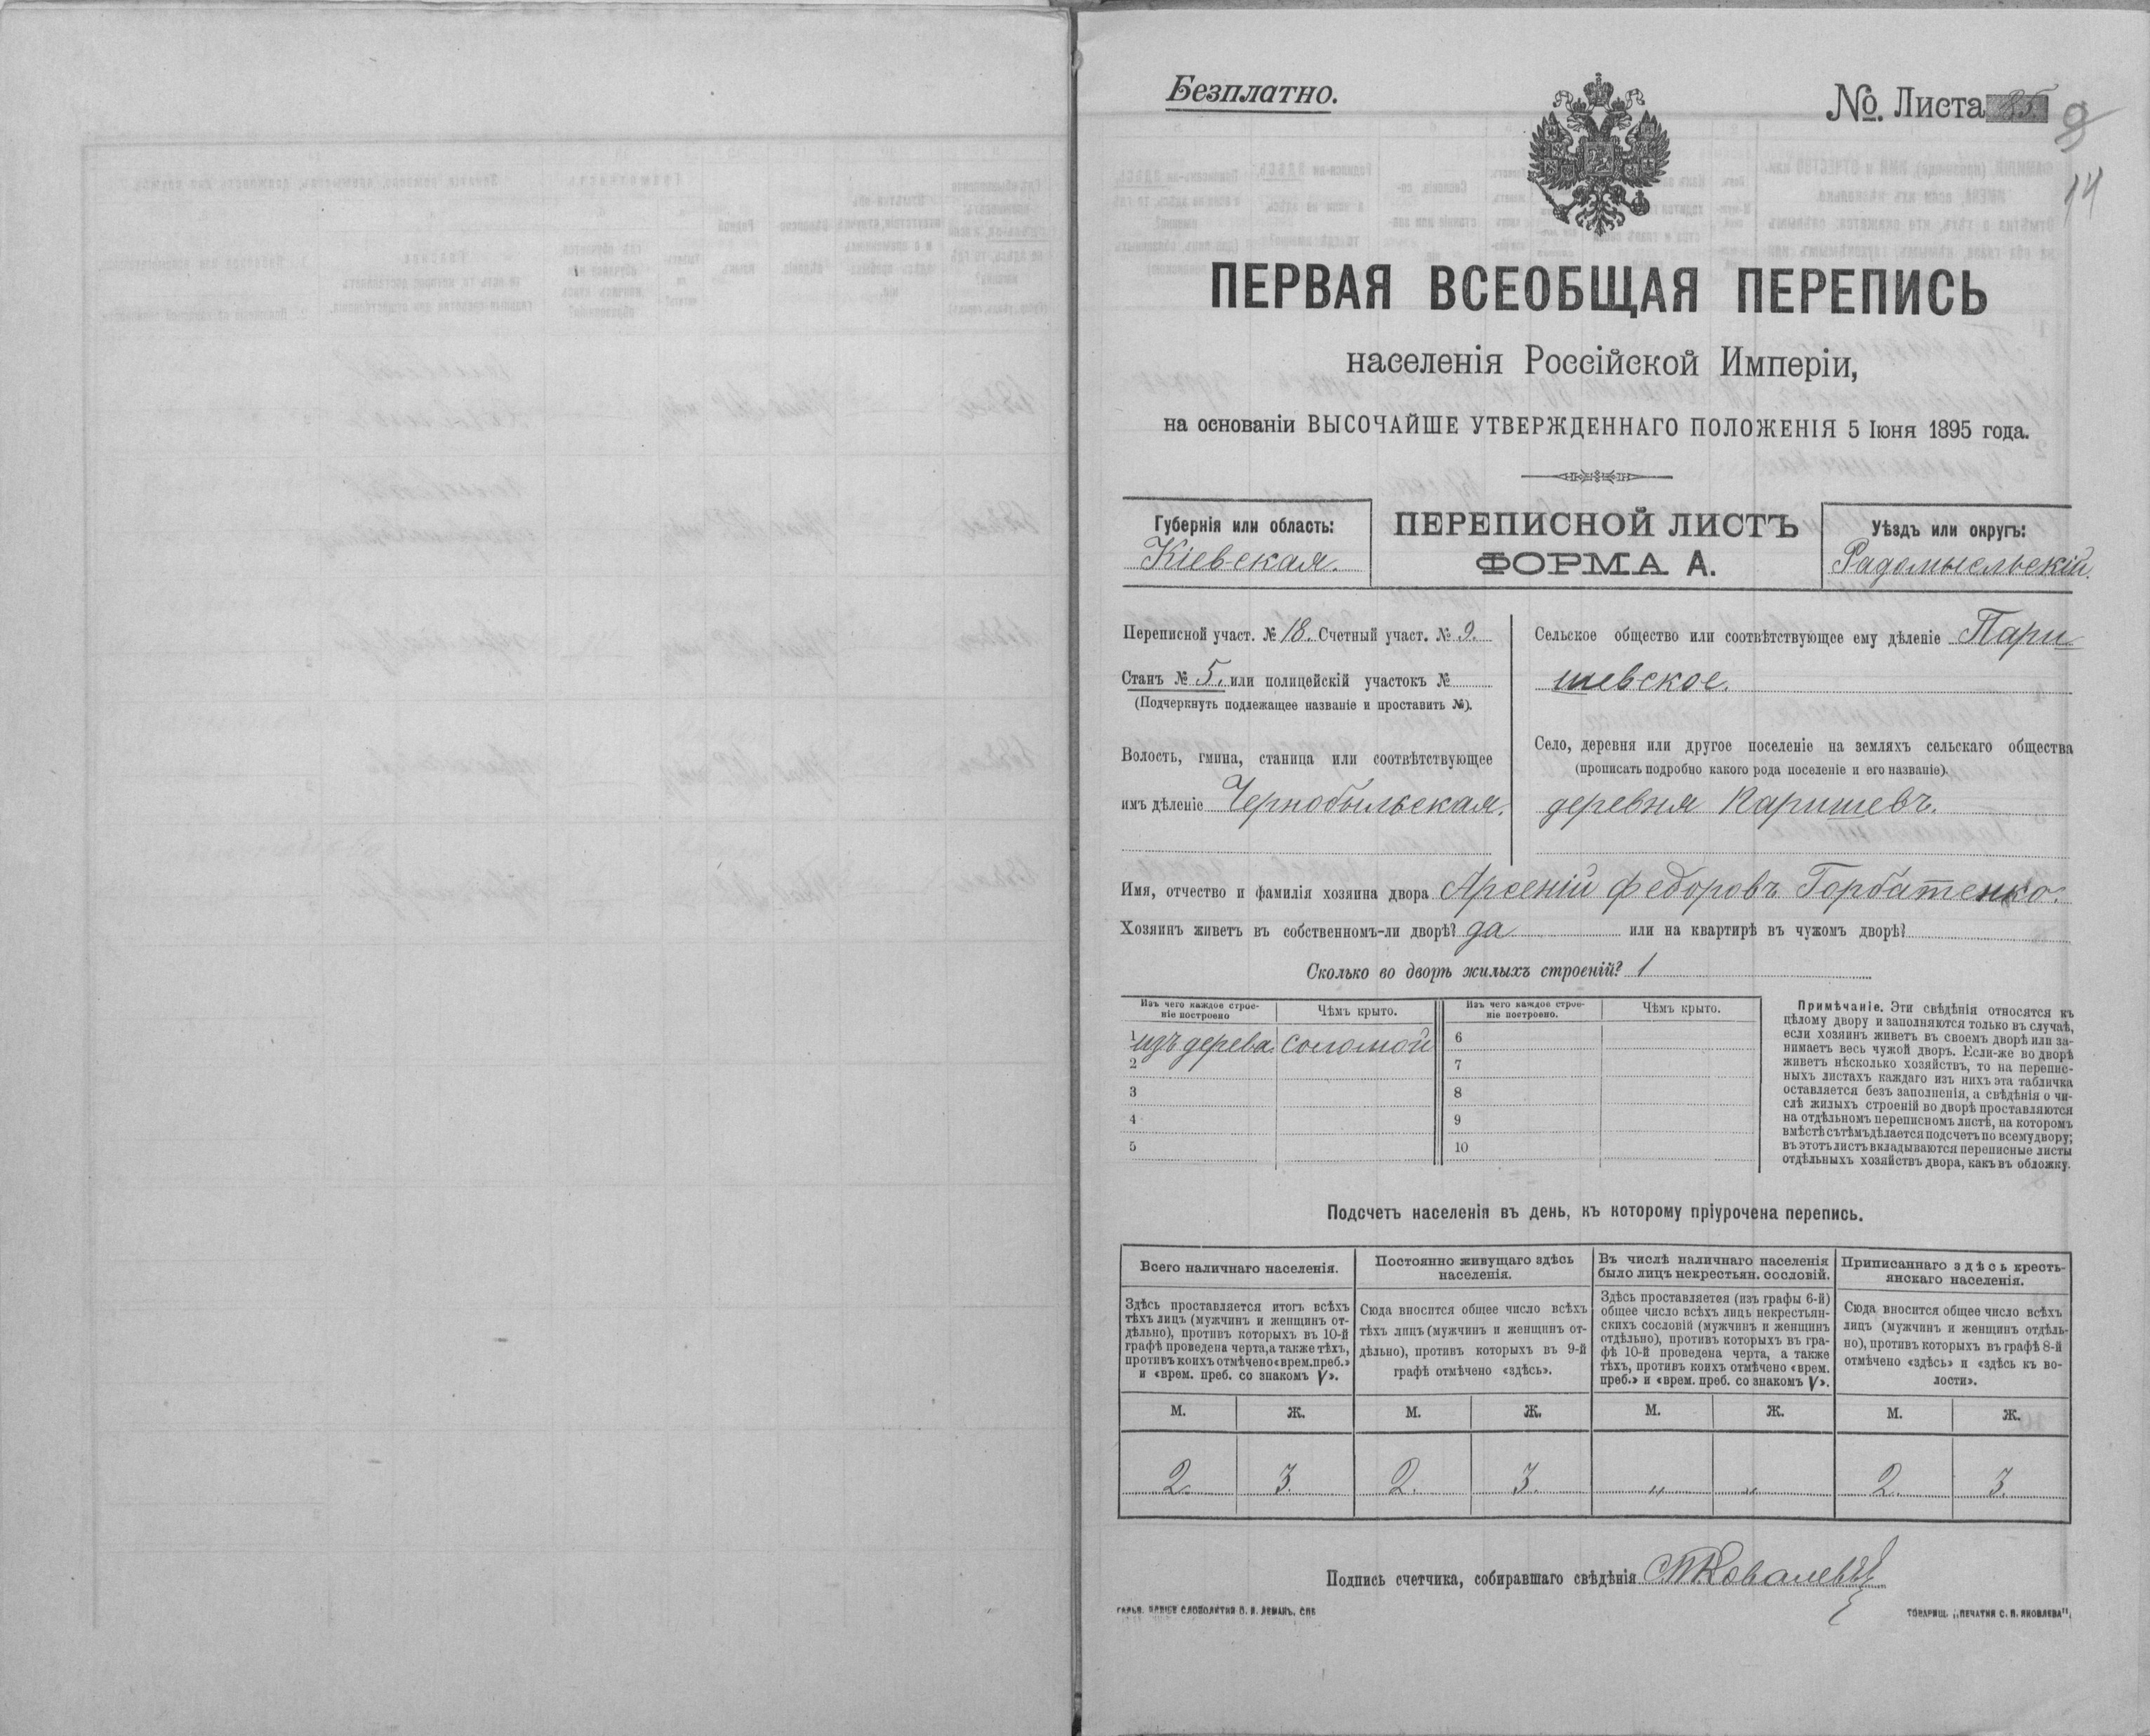 Безплатно.
№. Листа 25. 9
14
ПЕРВАЯ ВСЕОБЩАЯ ПЕРЕПИСЬ
населенія Россійской Имперіи,
на основаніи ВЫСОЧАЙШЕ УТВЕРЖДЕННАГО ПОЛОЖЕНІЯ 5 Іюня 1895 года.
Губернія или область:
Кіевская.
ПЕРЕПИСНОЙ ЛИСТЪ
ФОРМА А.
Уѣздъ или округъ:
Радомысльскій.
Переписной участ. № 18. Счетный участ. № 9.
Станъ № 5. или полицейскій участокъ №
(Подчеркнуть подлежащее названіе и проставить №).
Волость, гмина, станица или соотвѣтствующее
имъ дѣленіе Чернобыльская.
Сельское общество или соотвѣтствующее ему дѣленіе Пари
шевское.
Село, деревня или другое поселеніе на земляхъ сельскаго общества
(прописать подробно какого рода поселеніе и его названіе).
деревня Паришевъ.
Имя, отчество и фамилія хозяина двора Арсеній Федоровъ Горбатенко.
Хозяинъ живетъ въ собственномъ-ли дворѣ? да или на квартирѣ въ чужомъ дворѣ?
Сколько во дворѣ жилыхъ строеній? 1
Изъ чего каждое строе-
ніе построено
Чѣмъ крыто.
Изъ чего каждое строе-
ніе построено.
Чѣмъ крыто.
1 изъ дерева соломой
2
3
4
5
6
7
8
9
10
Примѣчаніе. Эти свѣдѣнія относятся къ
цѣлому двору и заполняются только въ случаѣ,
если хозяинъ живетъ въ своемъ дворѣ или за-
нимаетъ весь чужой дворъ. Если-же во дворѣ
живетъ нѣсколько хозяйствъ, то на перепис-
ныхъ листахъ каждаго изъ нихъ эта табличка
оставляется безъ заполненія, а свѣдѣнія о чи-
слѣ жилыхъ строеній во дворѣ проставляются
на отдѣльномъ переписномъ листѣ, на которомъ
вмѣстѣ съ тѣмъ дѣлается подсчетъ по всему двору;
въ этотъ листъ вкладываются переписные листы
отдѣльныхъ хозяйствъ двора, какъ въ обложку.
Подсчетъ населенія въ день, къ которому пріурочена перепись.
Всего наличнаго населенія.
Здѣсь проставляется итогъ всѣхъ
тѣхъ лицъ (мужчинъ и женщинъ от-
дѣльно), противъ которыхъ въ 10-й
графѣ проведена черта, а также тѣхъ,
противъ коихъ отмѣчено «врем. преб.»
и «врем. преб. со знакомъ V».
Постоянно живущаго здѣсь
населенія.
Сюда вносится общее число всѣхъ
тѣхъ лицъ (мужчинъ и женщинъ от-
дѣльно), противъ которыхъ въ 9-й
графѣ отмѣчено «здѣсь».
Въ числѣ наличнаго населенія
было лицъ некрестьян. сословій.
Здѣсь проставляется (изъ графы 6-й)
общее число всѣхъ лицъ некрестьян-
скихъ сословій (мужчинъ и женщинъ
отдѣльно), противъ которыхъ въ гра-
фѣ 10-й проведена черта, а также
тѣхъ, противъ коихъ отмѣчено «врем.
преб.» и «врем. преб. со знакомъ V».
Приписаннаго здѣсь кресть-
янскаго населенія.
Сюда вносится общее число всѣхъ
лицъ (мужчинъ и женщинъ отдѣль-
но), противъ которыхъ въ графѣ 8-й
отмѣчено «здѣсь» и «здѣсь къ во-
лости».
М. Ж. М. Ж. М. Ж. М. Ж.
2. 3. 2. 3. „ „ 2. 3.
Подпись счетчика, собиравшаго свѣдѣнія
ТОВАРИЩ. „ПЕЧАТНЯ С. П. ЯКОВЛЕВА“.